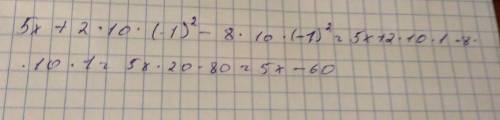 5x + 2 · 10 · (-1)² - 8 · 10 · (-1)² = 5x + 2 · 10 · 1 - 8 ·
· 10 · 1 = 5x · 20 · 80 = 5x - 60